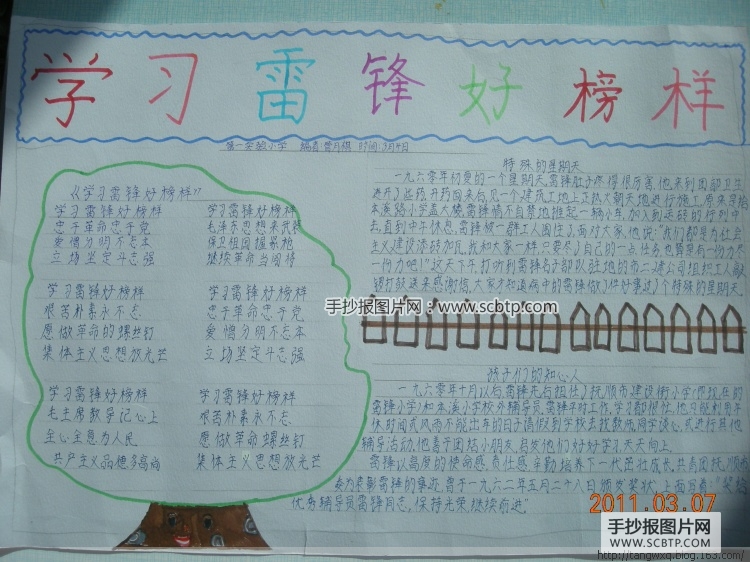 学习雷锋好榜样
第一实验小学 编者:曹月棋 时间:3月4日
《学习雷锋好榜样》
学习雷锋好榜样
忠于革命忠于党
爱憎分明不忘本
立场坚定斗志强
学习雷锋好榜样
毛泽东思想来武装
保卫祖国握紧枪
继续革命当闯将
学习雷锋好榜样
艰苦朴素永不忘
愿做革命的螺丝钉
集体主义思想放光芒
学习雷锋好榜样
忠于革命忠于党
爱憎分明不忘本
立场坚定斗志强
学习雷锋好榜样
毛主席教导记心上
全心全意为人民
共产主义品德多高尚
学习雷锋好榜样
艰苦朴素永不忘
愿做革命螺丝钉
集体主义思想放光芒
特殊的星期天
一九六零年初夏的一个星期天,雷锋肚子疼得很厉害,他来到团部卫生
连开了些药开药回来,见一个建筑工地上正热火朝天地进行施工,原来是给
本溪路小学盖大楼,雷锋情不自禁地推起一辆小车,加入到运砖的行列中
去,直到中午休息,雷锋被一群工人围住了,面对大家,他说:"我们都是为社会
主义建设添砖加瓦,我和大家一样,只要尽了自己的一点任务也算是有一份光发
一份力吧!"这天下午,打听到雷锋名字部队驻地的市二建公司组织工人敲
锣打鼓送来感谢信,大家才知道病中的雷锋做了件好事,过了个特殊的星期天。
手抄报图片网:www.scbtp.com
孩子们的知心人
一九六零年十月以后,雷锋先后担任了抚顺市建设街小学(现在的
雷锋小学)和本溪小学校外辅导员,雷锋平时工作,学习都很忙,他只能利用午
休时间或风雨不能出车的日子请假到学校去找教师同学谈心,或进行其他
辅导活动,他善于团结小朋友,启发他们好好学习天天向上。
雷锋以高度的使命感,责任感,辛勤培养下一代茁壮成长,共青团抚顺
委为表彰雷锋的事迹,曾于一九六二年五月二十八日颁发奖状,上面写着:"奖给
优秀辅导员雷锋同志,保持光荣,继续前进"
2011.03.07
手抄报图片网
WWW.SCBTP.COM
http://tangwxq.blog.163.com/